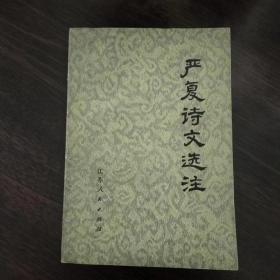 严复诗文选注
江苏人民出版社